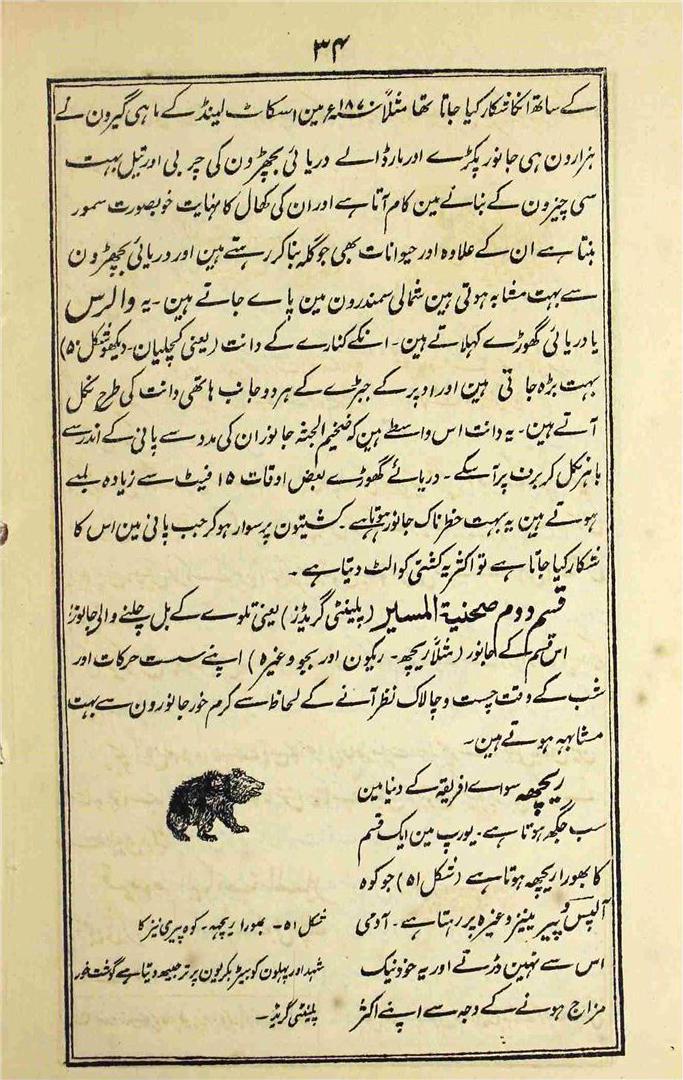 ۳۴
کے ساتھ انکا شکار کیا جاتا تھا مثلاً ۱۸۷۰ء مین اسکاٹ لینڈ کے ماہی گیرون نے
ہزارون ہی جانور پکڑے اور مار ڈالے دریائی بچھڑون کی چربی اور تیل بہت
سی چیزون کے بنانے مین کام آتا ہے اور ان کی کھال کا نہایت خوبصورت سمور
بنتا ہے ان کے علاوہ اور حیوانات بھی جو گلہ بنا کر رہتے ہین اور دریائی بچھڑون
سے بہت مشابہ ہوتی ہین شمالی سمندرون مین پاے جاتے ہین ۔ یہ والرس
یا دریائی گھوڑے کہلاتے ہین ۔ انکے کنارے کے دانت (یعنی کچلیان ۔ دیکھو شکل ۵۰)
بہت بڑہ جاتی ہین اور اوپر کے جبڑے کے ہر دو جانب ہاتھی دانت کی طرح نکل
آتے ہین ۔ یہ دانت اس واسطے ہین کہ ضخیم الجثہ جانور ان کی مدد سے پانی کے اندر سے
باہر نکل کر برف پر آسکے ۔ دریائے گھوڑے بعض اوقات ۱۵ فیٹ سے زیادہ لمبے
ہوتے ہین یہ بہت خطرناک جانور ہوتا ہے ۔ کشتیون پر سوار ہوکر جب پانی مین اس کا
شکار کیا جاتا ہے تو اکثر یہ کشتی کو الٹ دیتا ہے ۔
قسم دوم صحنیۃ المسایر (پلینٹی گریڈز) یعنی تلوے کے بل چلنے والی جانور
اس قسم کے جانور (مثلاً ریچھ ۔ ریکون اور بجو وغیرہ) اپنے سست حرکات اور
شب کے وقت چست و چالاک نظر آنے کے لحاظ سے کرم خور جانورون سے بہت
مشابہہ ہوتے ہین ۔
ریچھہ سواے افریقہ کے دنیا مین
سب جگھہ ہوتا ہے ۔ یورپ مین ایک قسم
کا بھورا ریچھہ ہوتا ہے (شکل ۵۱) جو کوہ
آلپس و پیرینیز وغیرہ پر رہتا ہے ۔ آدمی
اس سے نہین ڈرتے اور یہ خود نیک
مزاج ہونے کے وجہ سے اپنے اکثر
شکل ۵۱ ۔ بھورا ریچھہ ۔ کوہ پیری نیز کا
شہد اور پھلون کو بھیڑ بکریون پر ترجیحہ دیتا ہے گوشت خور
پلینٹی گریڈ ۔